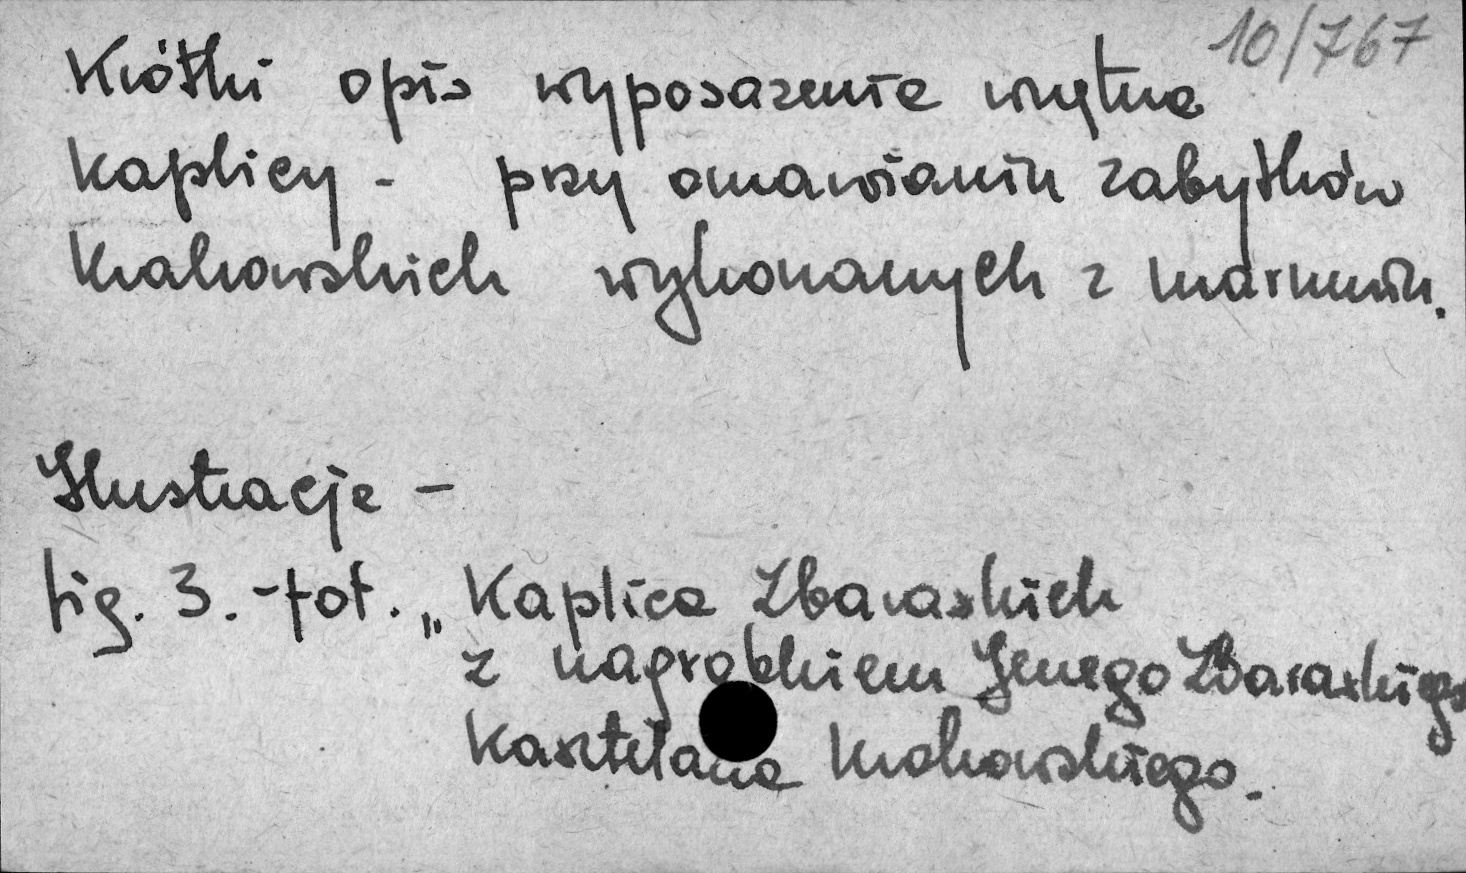 10/767
Krótki opis wyposażenie wnętrza
kaplicy - przy omawianiu zabytków
krakowskich wykonanych z marmuru.
Ilustracje -
fig. 3. - fot. „Kaplica Zbaraskich
z nagrobkiem Jerzego Zbaraskiego
Kasztelana Krakowskiego.